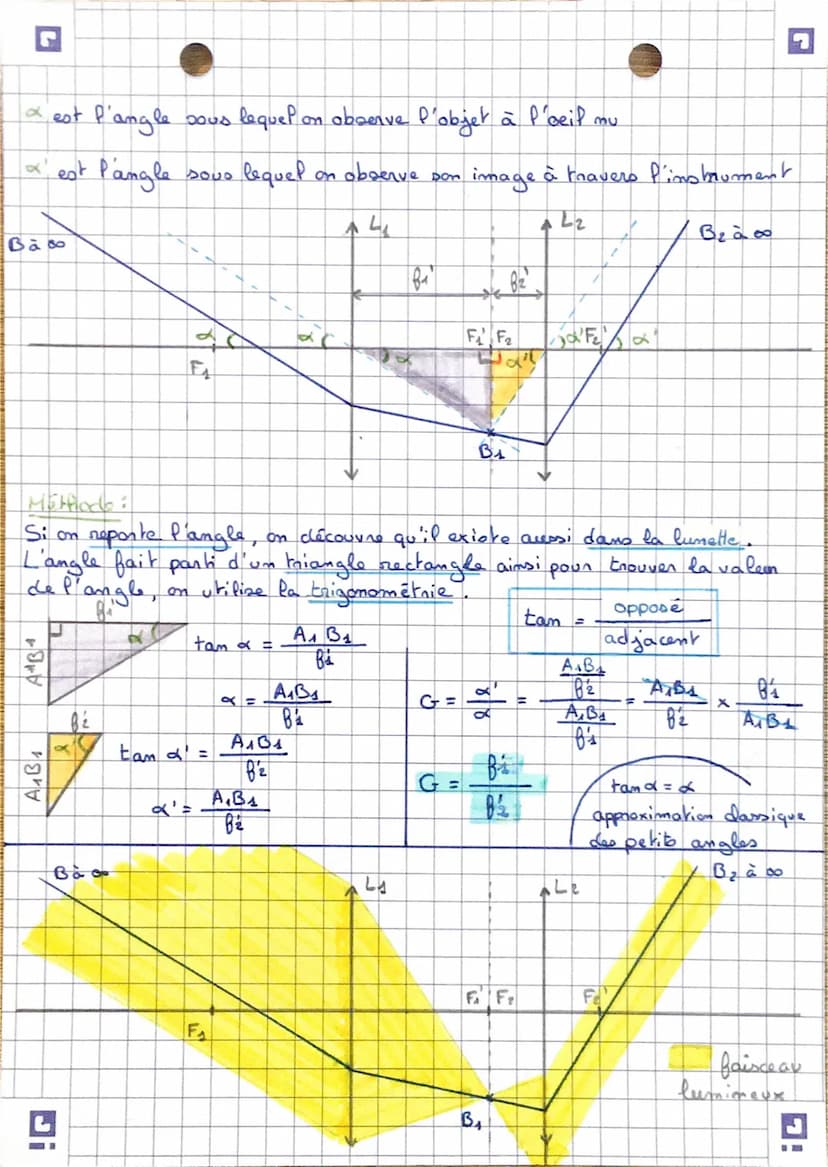 α est l'angle sous lequel on observe l'objet à l'oeil nu
α' est l'angle sous lequel on observe son image à travers l'instrument
B à ∞
L1
L2
B2 à ∞
f1'
f2'
α
α
F1' F2
α' F2'
α'
F1
α
α'
B1
Méthode :
Si on reporte l'angle, on découvre qu'il existe aussi dans la lunette.
L'angle fait parti d'un triangle rectangle ainsi pour trouver la valeur
de l'angle, on utilise la trigonométrie.
tan = opposé / adjacent
f1'
A1B1
α
tan α = A1B1 / f1'
α = A1B1 / f1'
f2'
A1B1
α'
tan α' = A1B1 / f2'
α' = A1B1 / f2'
G = α' / α = (A1B1 / f2') / (A1B1 / f1') = A1B1 / f2' × f1' / A1B1
G = f1' / f2'
tan α = α
approximation classique
des petits angles
B à ∞
L1
L2
B2 à ∞
F1' F2
F2'
F1
B1
faisceau
lumineux